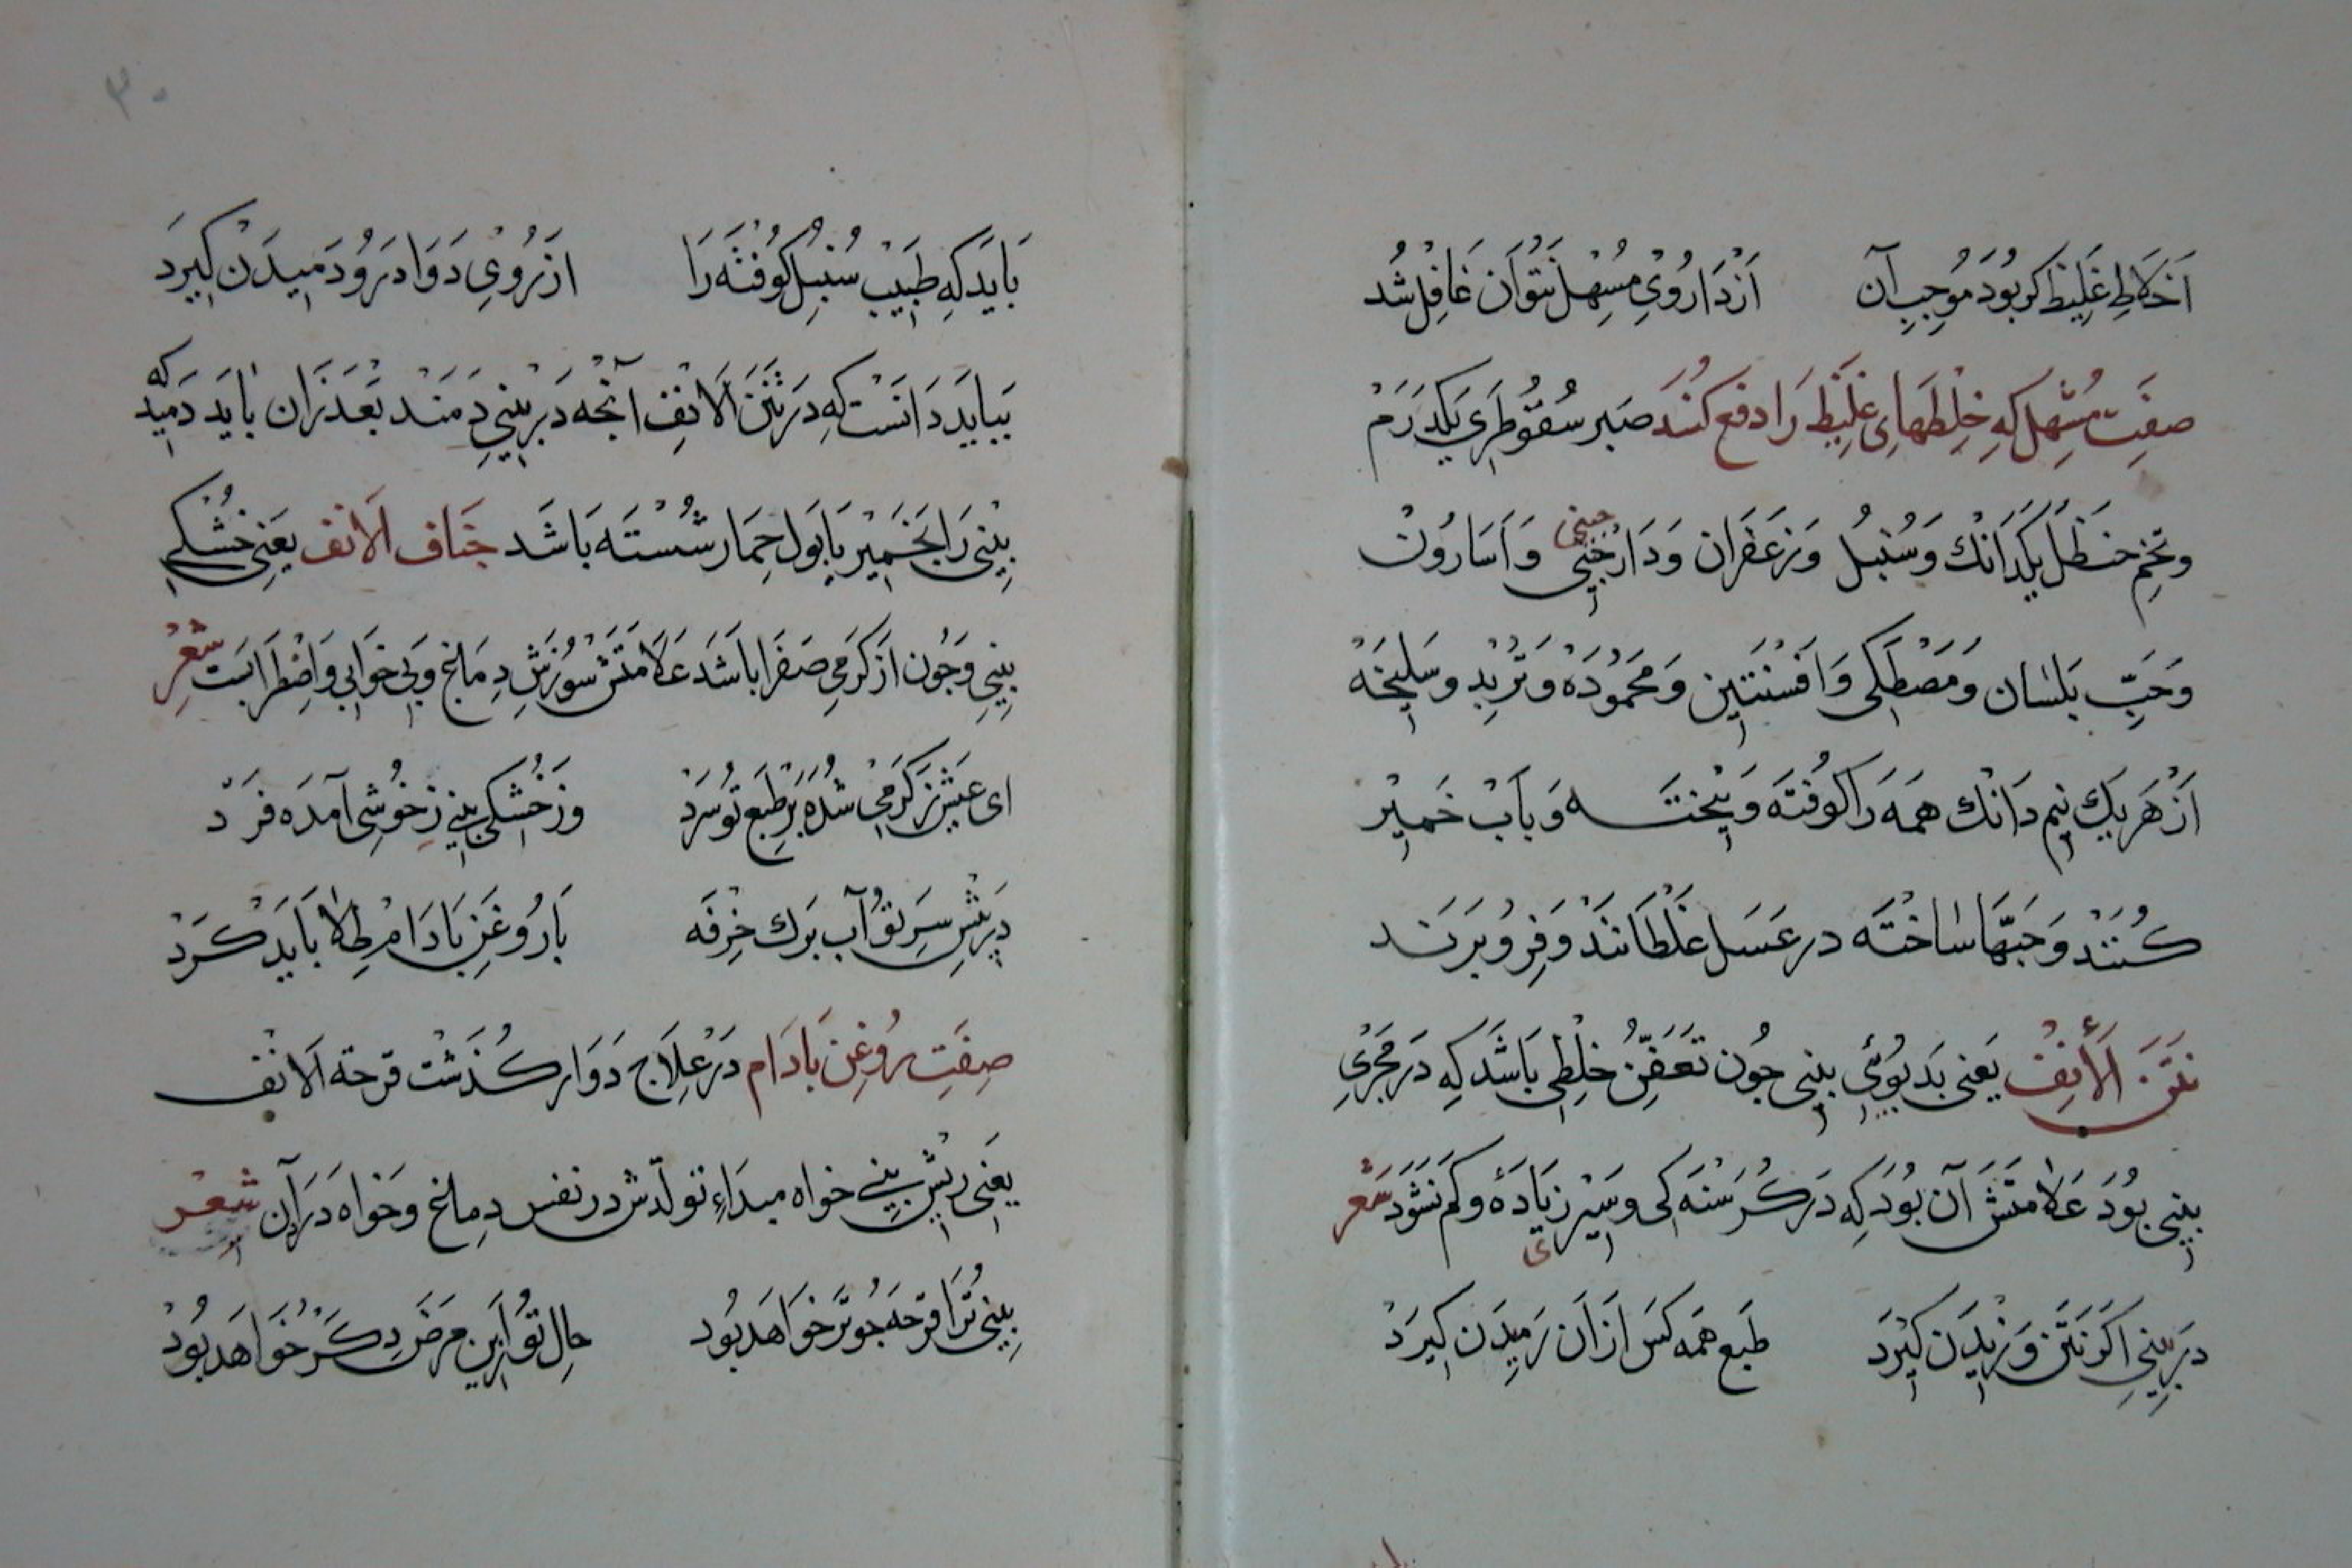 اَخلاطِ غَلِیظ کر بُوَد مُوجِبِ آن اَزْ دَارُویِ مُسْهِل نَتَوُان غَافِل شُد
صِفَتِ مُسْهِل كِهِ خِلطَهَایِ غَلِیْظ رَا دَفع کُنَدْ صَبر سُقُوطَرِی یَکدَرَمْ
وَتُخمِ حَنظَل یَکدَانْك وَسُنْبُل وَزَعفَران وَدَارجِینِی چینی وَاَسَارُونْ
وَحَبِّ بَلسَان وَمَصْطَکی وَاَفسَنتَین وَمَحمُودَهْ وَتُربُد وَسَلیخَهْ
اَزْ هَر یَك نیم دَانْك هَمَه رَا کوُفتَه وَبیختَه وَبَآب خَمِیر
کُنَنْد وَحَبّهَا سَاختَه در عَسَل غَلْطَانَنْد وَفِرُو بَرَنْد
نَتَنَ الْأَنِف یَعنی بَد بُویْئِ بینی چُون تَعَفُّنِ خِلطِی بَاشَد کِه دَر مَجرْیِ
بینی بوُدَ عَلامَتَش آن بُوَد کِه دَر کُرسْنَه کی وَسِیْری زیَادَهْ وکَم نَشَوَد شعر
دَر بینیِ اکر نَتَن وَزیدَن کیرَدْ طَبع هَمَه کَسَ اَز اَن رَمیدَن کیرَدْ
۳۰
بَایَد کِهِ طَبِیب سُنْبلِ کوُفتَه رَا اَز رُویِ دَوَا دَر وُ دَمیدَن کیرَد
بِبایَد دَانَسْت کِه دَر نَتَنَ الَانِف آنْچه دَر بینیِ دَمَنْد بَعْدَزَان بَایَد دَمید که
بِینِی رَا بَخَمیْر یَا بَول حِمَار شُسْتَه بَاشَد جَفاف الاَنف یَعنِی خُشْکیِ
بینیِ وَچُون اَز کَرمیِ صَفرَا بَاشَد عَلامَتَش سُوزِشِ دِماغ وَبی خَوابی وَاِضْطِرَابَست شعر
ای عَیش زِ کَرمِیْ شُدَهْ بَر طَبع تُو سَرَدْ وَز خُشْکی بینی زِ خُوشِی آمَدَه فَرَدْ
بَر پیش سَرِ تُوْ آب بَرك خِرْفَه بَا رُوغَنِ بَادَامْ طِلَا بَایَدْ کَرَدْ
صِفَتِ رُوغَنِ بَادَام دَرْ عِلَاج دَوَار کُذَشْت قرحة الَانْف
یَعَنِی رِیْش بینی خواه مبدَاءِ تولّدش در نفس دِماغ وَخواه دَر آن شِعْر
بینِی تُرَا قَرحَه چُو تَر خوَاهَد بُود حَالِ تُو اَزین مَرَض دِکَرْ خوَاهَد بُودْ